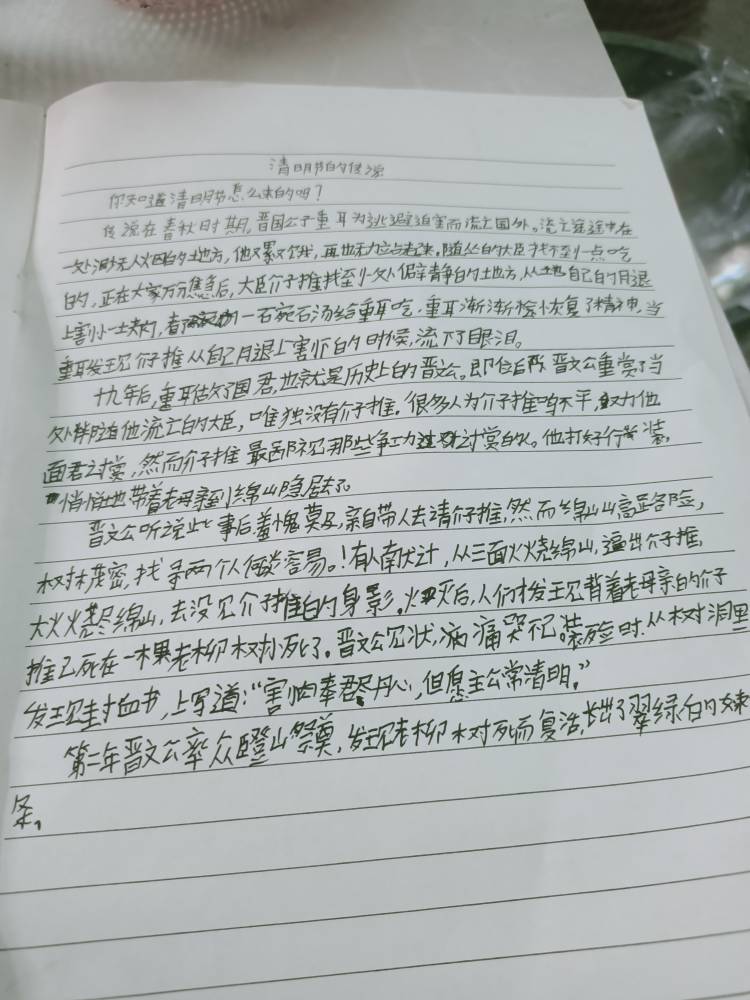 清明节的传说
你知道清明节怎么来的吗？
传说在春秋时期，晋国公子重耳为逃避迫害而流亡国外。流亡途中在
一处渺无人烟的地方，他又累又饿，再也无力站起来，随从的大臣找不到一点吃
的，正在大家万分焦急后，大臣介子推找到一处僻静的地方，从自己的腿
上割一块肉，一碗汤给重耳吃，重耳渐渐恢复了精神，当
重耳发现介子推从自己腿上割下的时候，流下了眼泪。
十九年后，重耳做了国君，也就是历史上的晋文公。即位后晋文公重赏了当
处伴随他流亡的大臣，唯独没有介子推。很多人为介子推鸣不平，劝他
面君讨赏，然而介子推最鄙视那些争功讨赏的人。他打好行装，
悄悄地带着老母亲到绵山隐居去了。
晋文公听说此事后羞愧莫及，亲自带人去请介子推，然而绵山山高路险，
树林茂密，找寻两个人何谈容易。！有人献计，从三面火烧绵山，逼出介子推，
大火烧尽绵山，去没见介子推的身影，火灭后，人们才发现背着老母亲的介子
推已死在一棵老柳树下死了。晋文公见状，痛哭不已。装殓时，从树洞里
发现一封血书，上写道：“割肉奉君尽丹心，但愿主公常清明。”
第二年晋文公率众登山祭奠，发现老柳树死而复活，长出了翠绿的嫩
条。